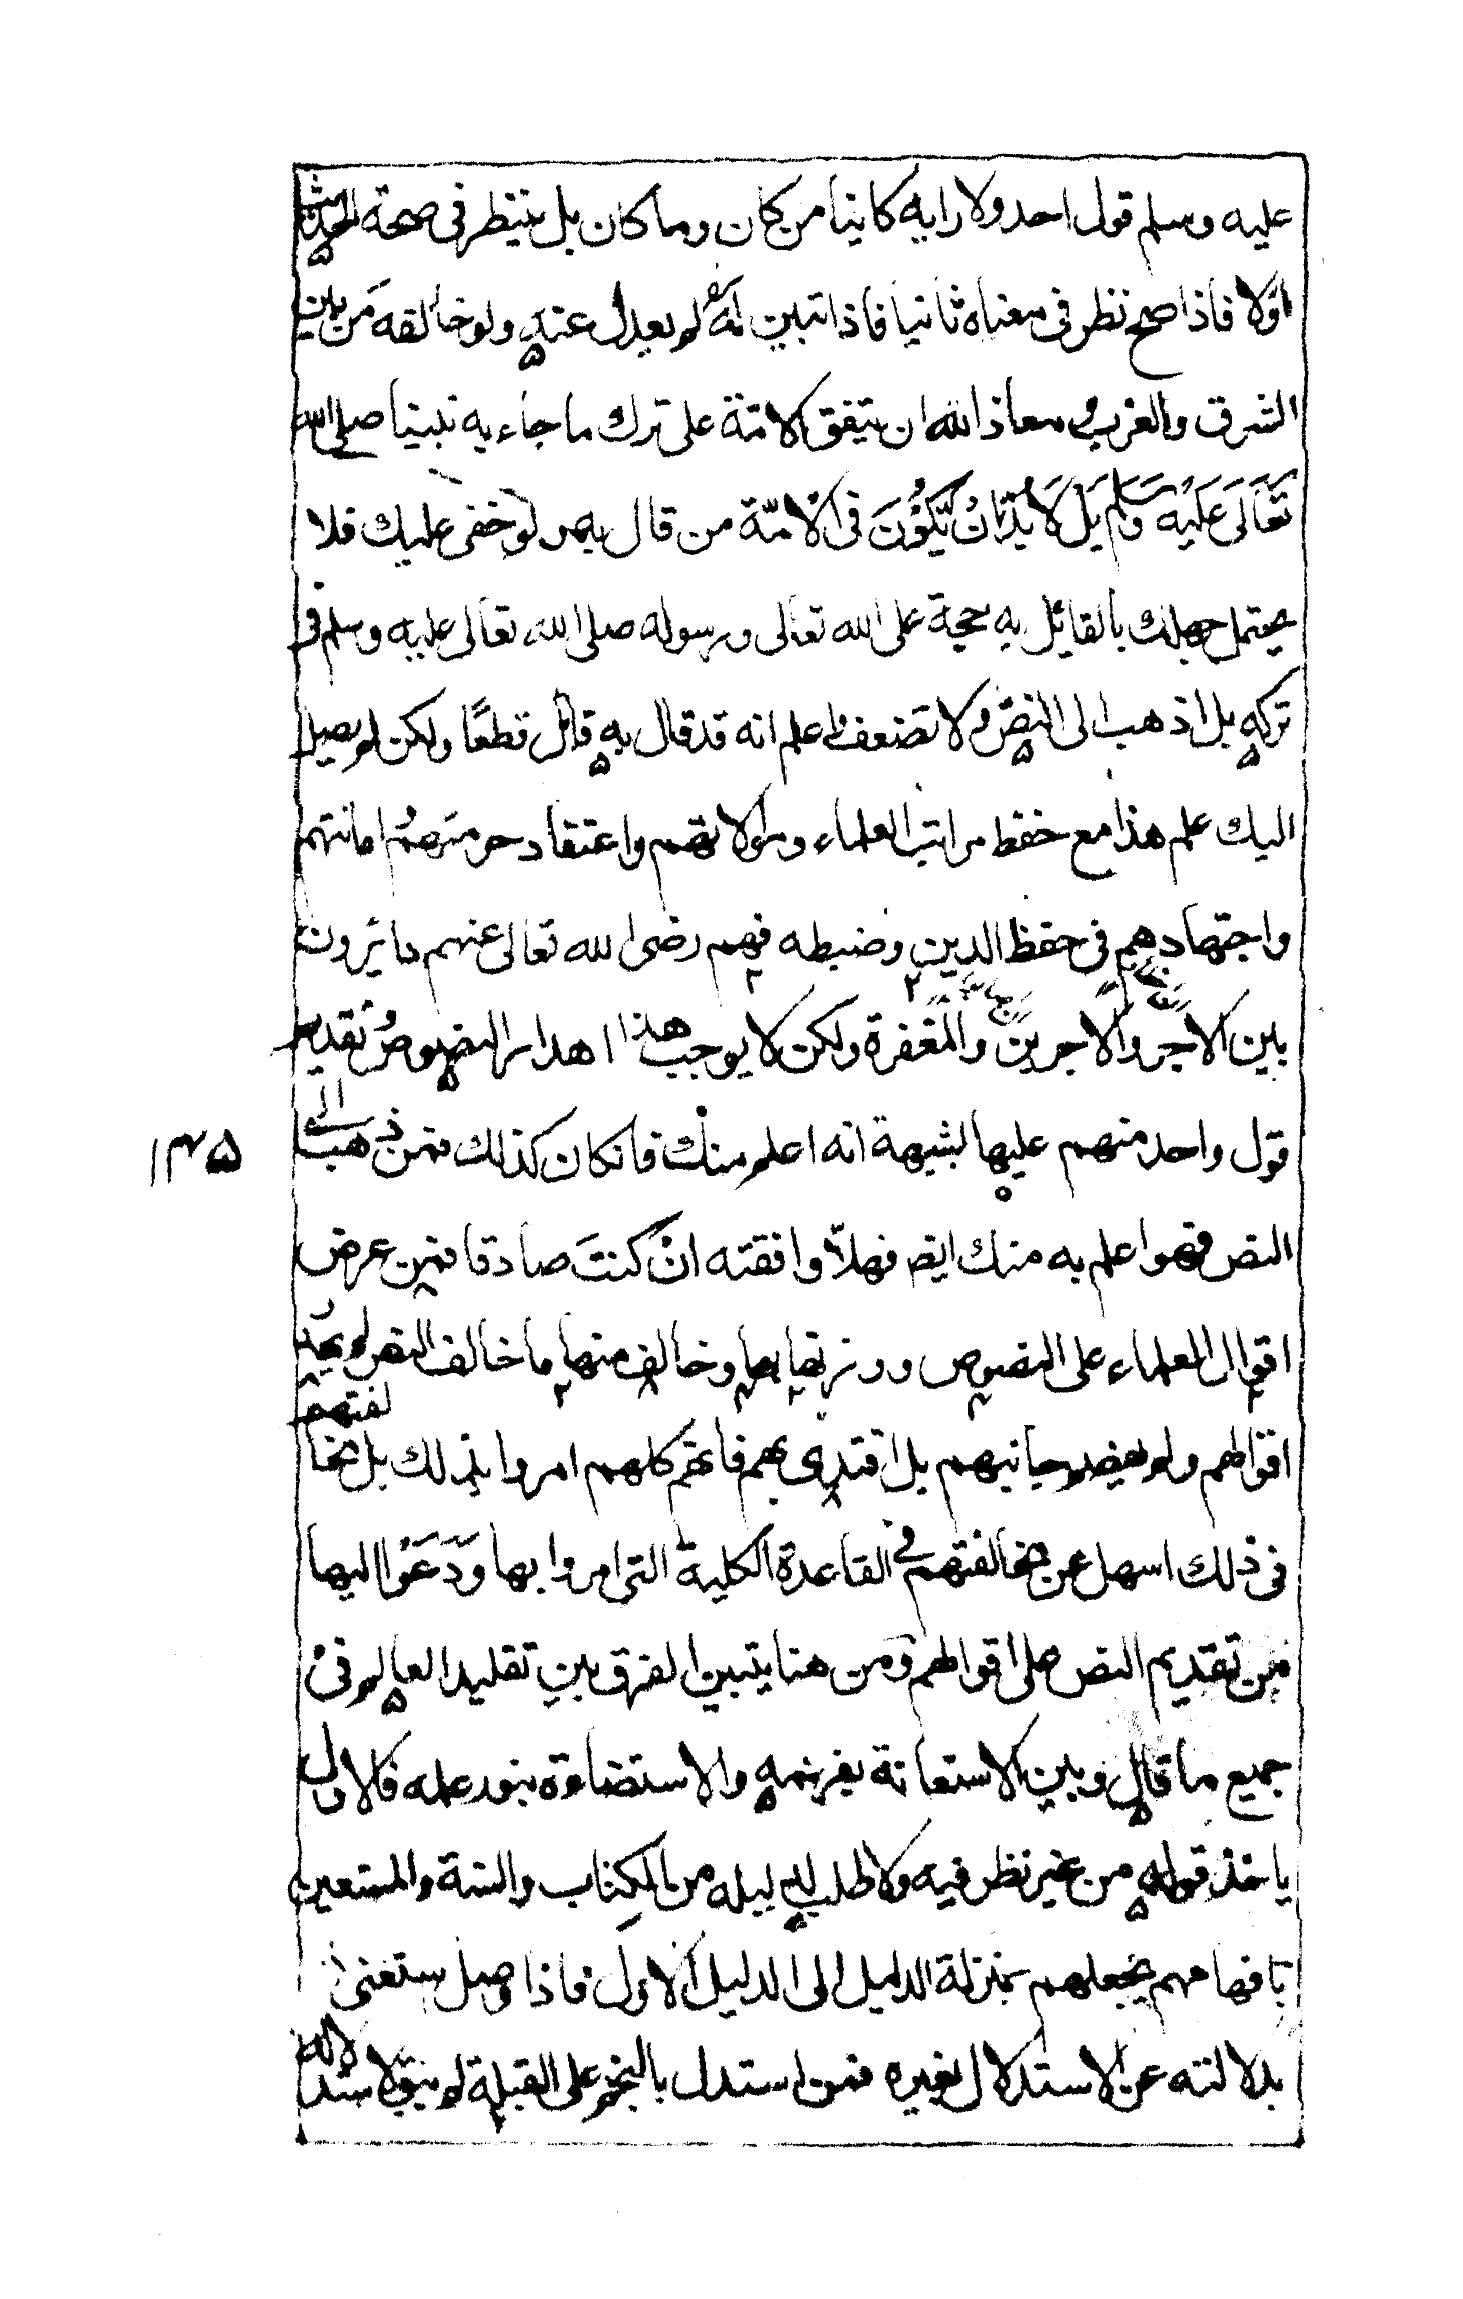 عليه وسلم قول احد ولا رايه كاينا من كان وما كان بل ينظر فى صحة الحديث
اوّلا فاذا صح نظر فى معناه ثانيا فاذا تبين له لم يعدل عنه ولو خالفه مَن بين
الشرق والغرب ومعاذ الله ان يتفق الامّة على ترك ما جاء به نبينا صلى الله
تَعَالَى عَلَيْهِ وَسَلَّم بَلْ لَا بُدَّ اَنْ يَّكُوْنَ فى الْامّة من قال به ولو خفى عليك فلا
يحتمل جهلك بالقائل به حجة على الله تعالى ورسوله صلى الله تعالى عليه وسلم فى
تركه بل اذهب الى النص ولا تضعف واعلم انه قد قال به قائل قطعًا ولكن لم يصل
اليك علم هذا مع حفظ مراتب العلماء وموالاتهم واعتقاد حرمتهم امانتهم
واجتهادهم فى حفظ الدين وضبطه فهم رضى الله تعالى عنهم دائرون
بين الاجر والاجرين والمغفرة ولكن لا يوجب هذا اهدار النصوص تقديم
قول واحد منهم عليها لشبهة انه اعلم منك فانكان كذلك فمن ذهب الى
١٣٥
النص فهو اعلم به منك ايضا فهلّا وافقته انْ كنتَ صادقا فمن عرض
اقوال العلماء على النصوص ووزنها بها وخالف منها ما خالف النص لم يهدر
اقوالهم ولم يهضم جانبهم بل اقتدى بهم فانهم كلهم امروا بذلك بل مخالفتهم
فى ذلك اسهل من مخالفتهم فى القاعدة الكلية التى امروا بها وَدَعَوْا اليها
من تقديم النص على اقوالهم ومن هنا يتبين الفرق بين تقليد العالم فى
جميع ما قال وبين الاستعانة بفهمه والاستضاءة بنور علمه فالاول
ياخذ قوله من غير نظر فيه ولا طلب دليله من الكتاب والسنة والمستعين
بافهامهم يجعلهم بمنزلة الدليل الى الدليل الاول فاذا وصل استغنى
بدلالته عن الاستدلال بغيره فمن استدل بالنجم على القبلة لم يبق لاستدلاله